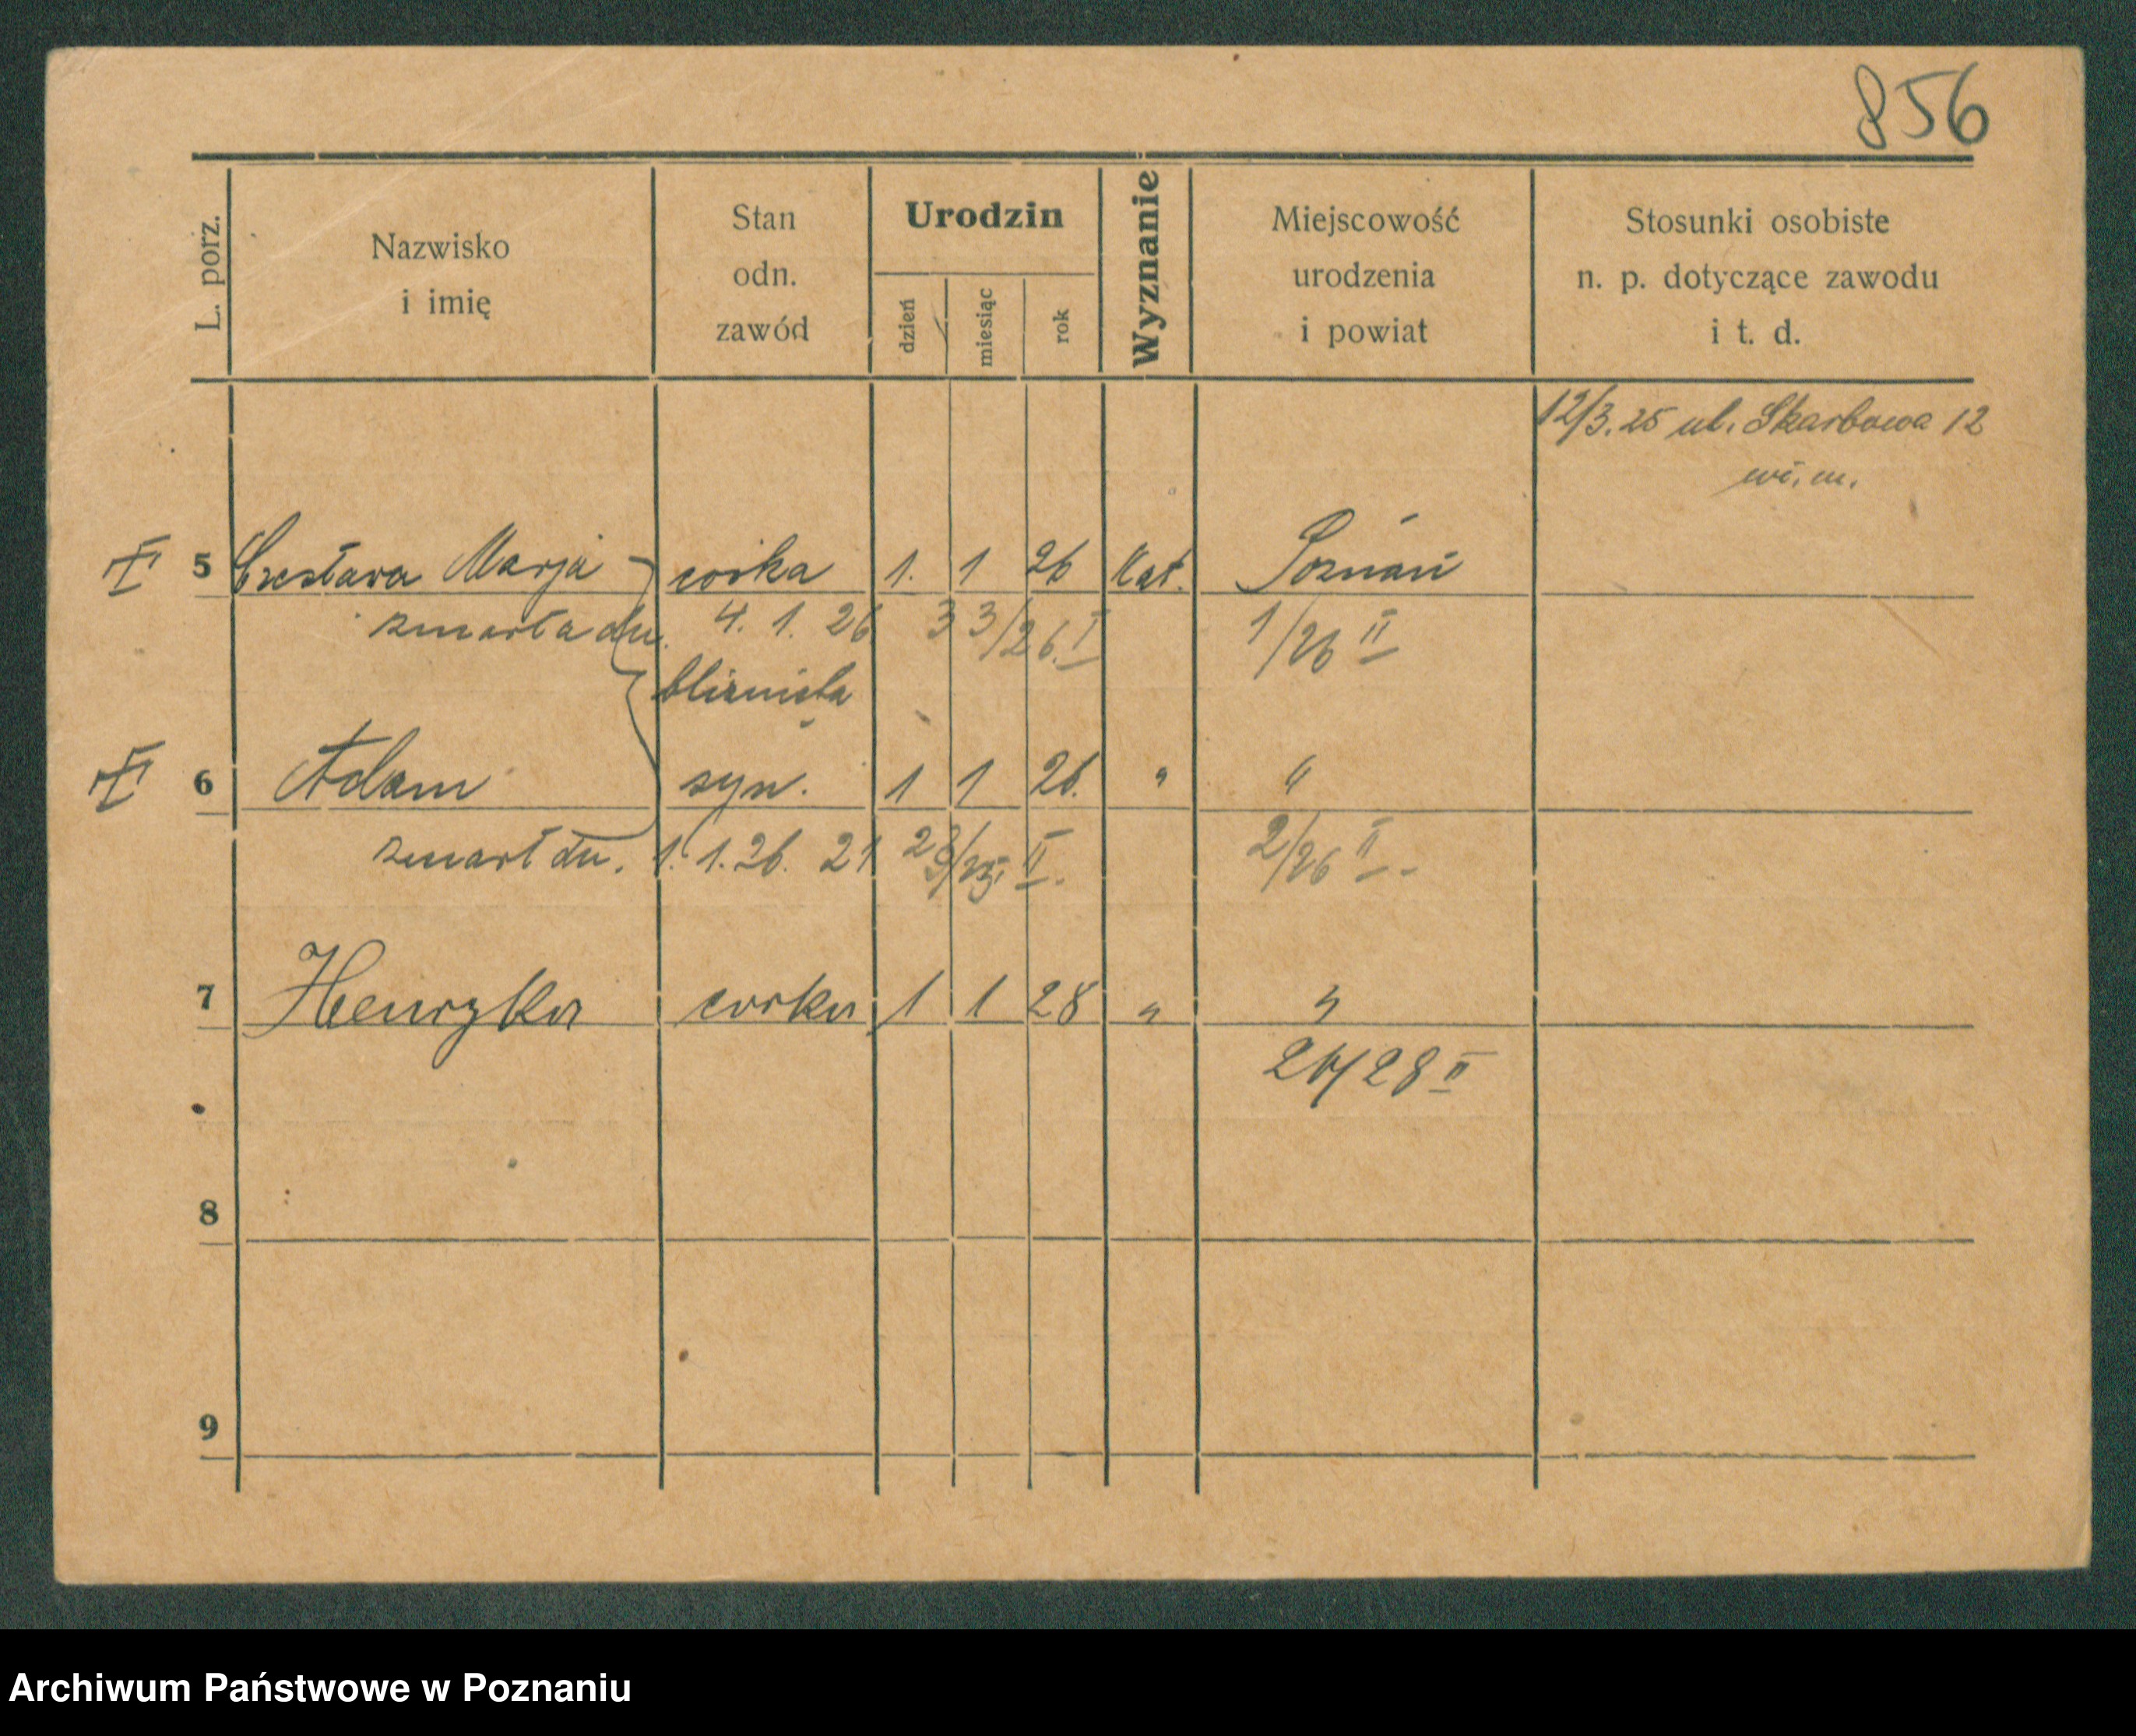 856
L. porz.
Nazwisko
i imię
Stan
odn.
zawód
Urodzin
dzień
miesiąc
rok
Wyznanie
Miejscowość
urodzenia
i powiat
Stosunki osobiste
n. p. dotyczące zawodu
i t. d.
12/3.25 ul. Skarbowa 12
5 Czesława Marja córka 1. 1 26 kat. Poznań
zmarła dn. 4. 1. 26 33/26. I 1/26 II
bliznięta
6 Adam syn. 1 1 26. " "
zmarł dn. 1. 1. 26. 21 II. 2/26 II
7 Henryka corka 1 1 28 " "
28 II
8
9
Archiwum Państwowe w Poznaniu